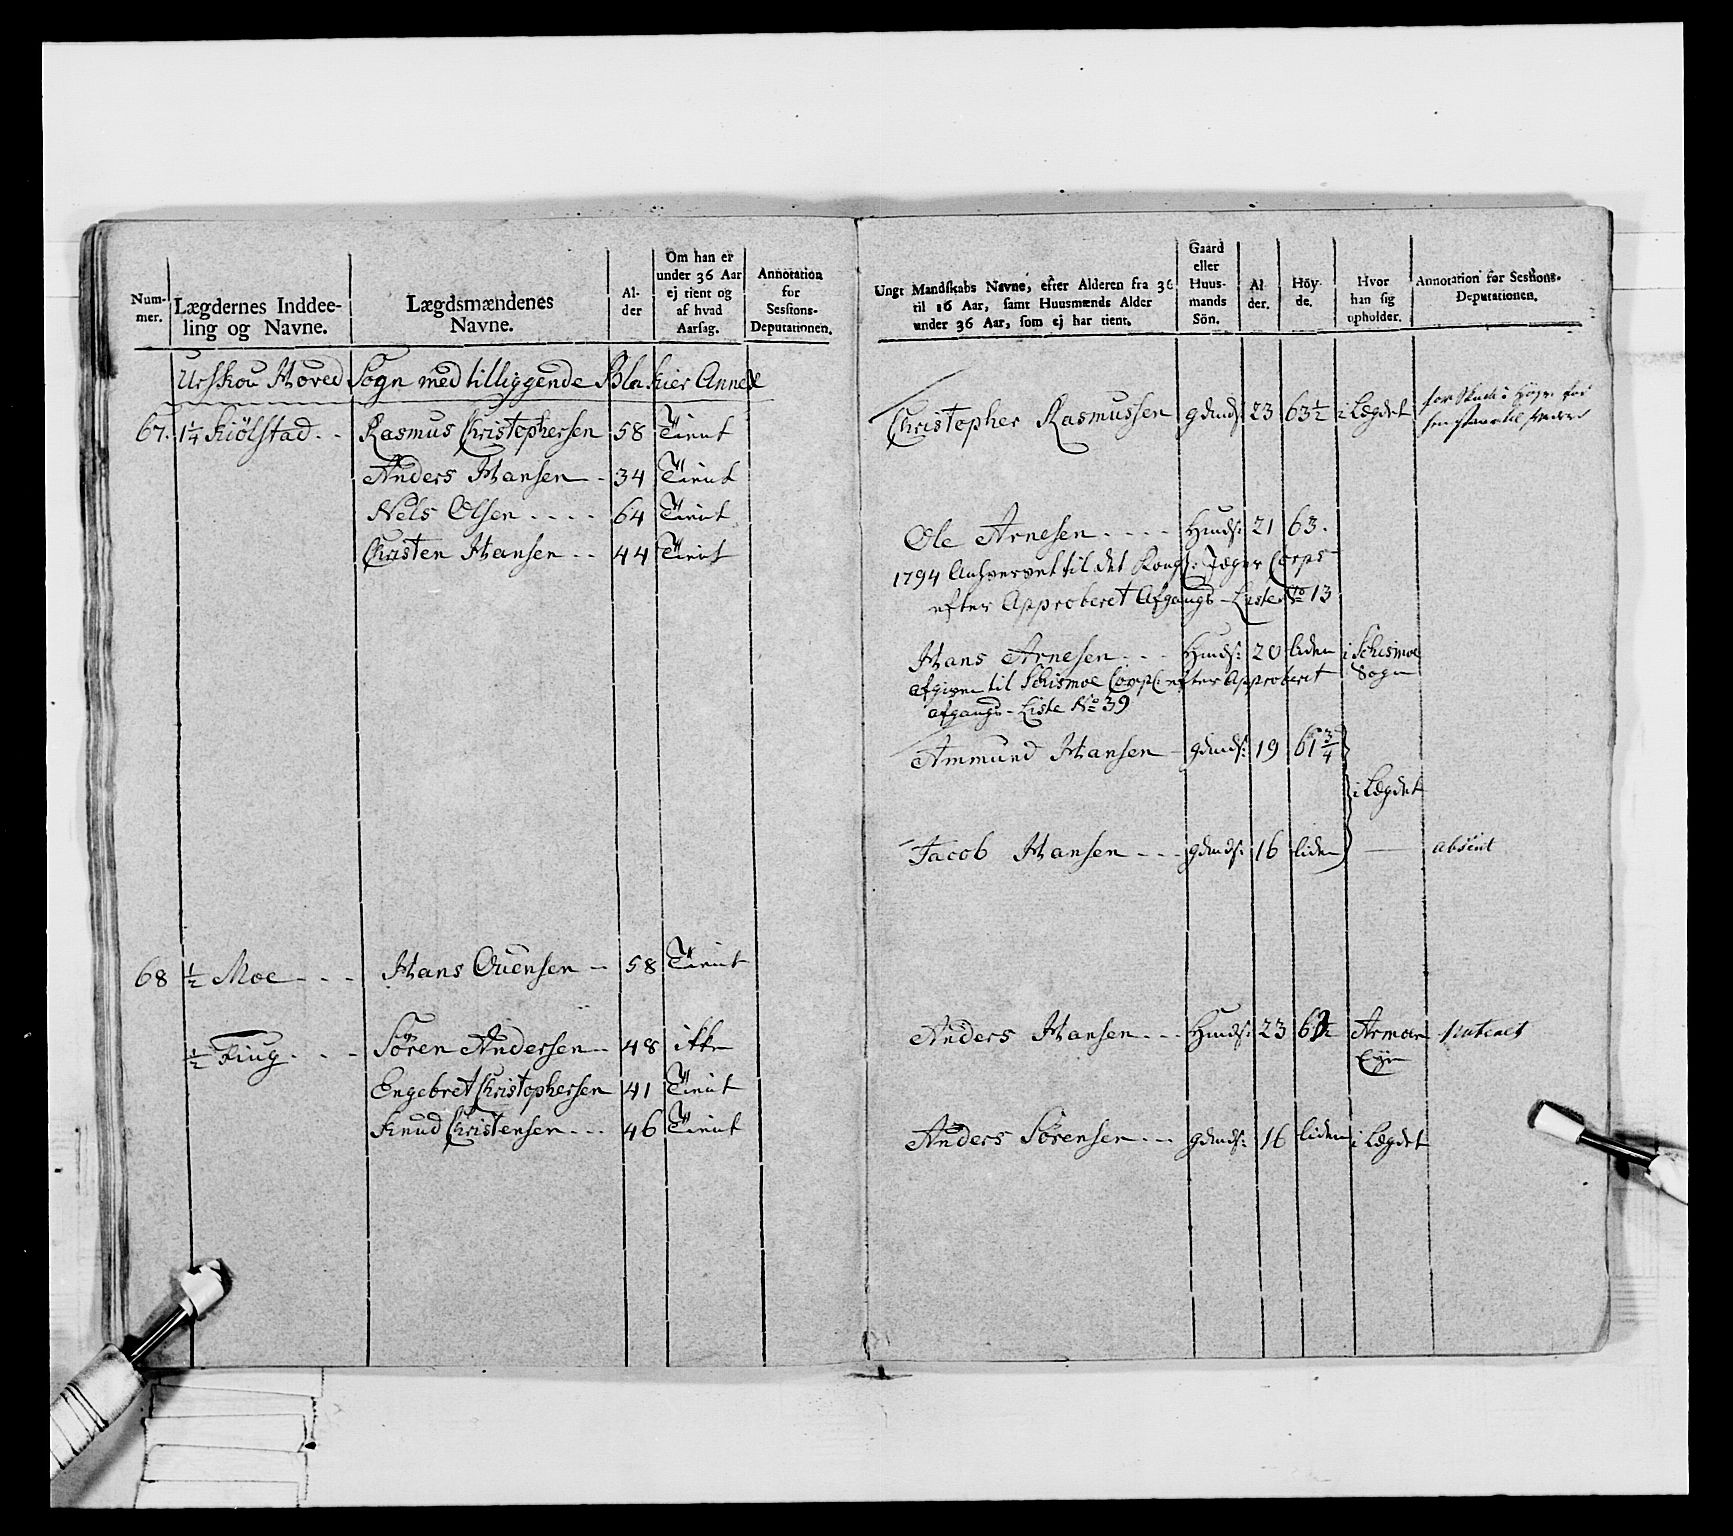 Num-
mer.
Lægdernes Inddee-
ling og Navne.
Lægdsmændenes
Navne.
Al-
der
Om han er
under 36 Aar
ej tient og
af hvad
Aarsag.
Annotation
for
Sessions-
Deputationen.
Urskou Hoved Sogn med tilliggende Blakier Annex
67. 1¼ Kiölstad - - Rasmus Christophersen 58 Tient
Anders Hansen - 34 Tient
Nels Olsen - - - - 64 Tient
Christen Hansen - - 44 Tient
68 ½ Moe - - - Hans Ouensen - 58 Tient
½ Ring - - - Sören Andersen - 48 ikke
Engebret Christophersen 41 Tient
Knud Christensen - - - 46 Tient
Ungt Mandskabs Navne, efter Alderen fra 36
til 16 Aar, samt Huusmænds Alder
under 36 Aar, som ej har tient.
Gaard
eller
Huus-
mands
Sön.
Al
der.
Höy-
de.
Hvor
han sig
opholder.
Annotation for Sessions-
Deputationen.
Christopher Rasmussen gdmds: 23 63½ i Lægdet for Skade i höyre
Ole Arnesen - - - - Hmds: 21 63.
1794 Anhvervet til det Kongl: Jæger Corps
efter Approberet Afgangs-Liste No 13
Hans Arnesen - - - Hmds: 20 liden i Schismoe
Sogn
afgiven til Schismoe Comp: efter Approberet
afgangs-Liste No 39
Ammund Hansen - gdmds: 19 61¾
i Lægdet
Jacob Hansen - - - gdmds: 16 liden — absent
Anders Hansen - - - Hmds: 23 Armoe
Anders Sörensen - - - gdmds: 16 liden i Lægdet